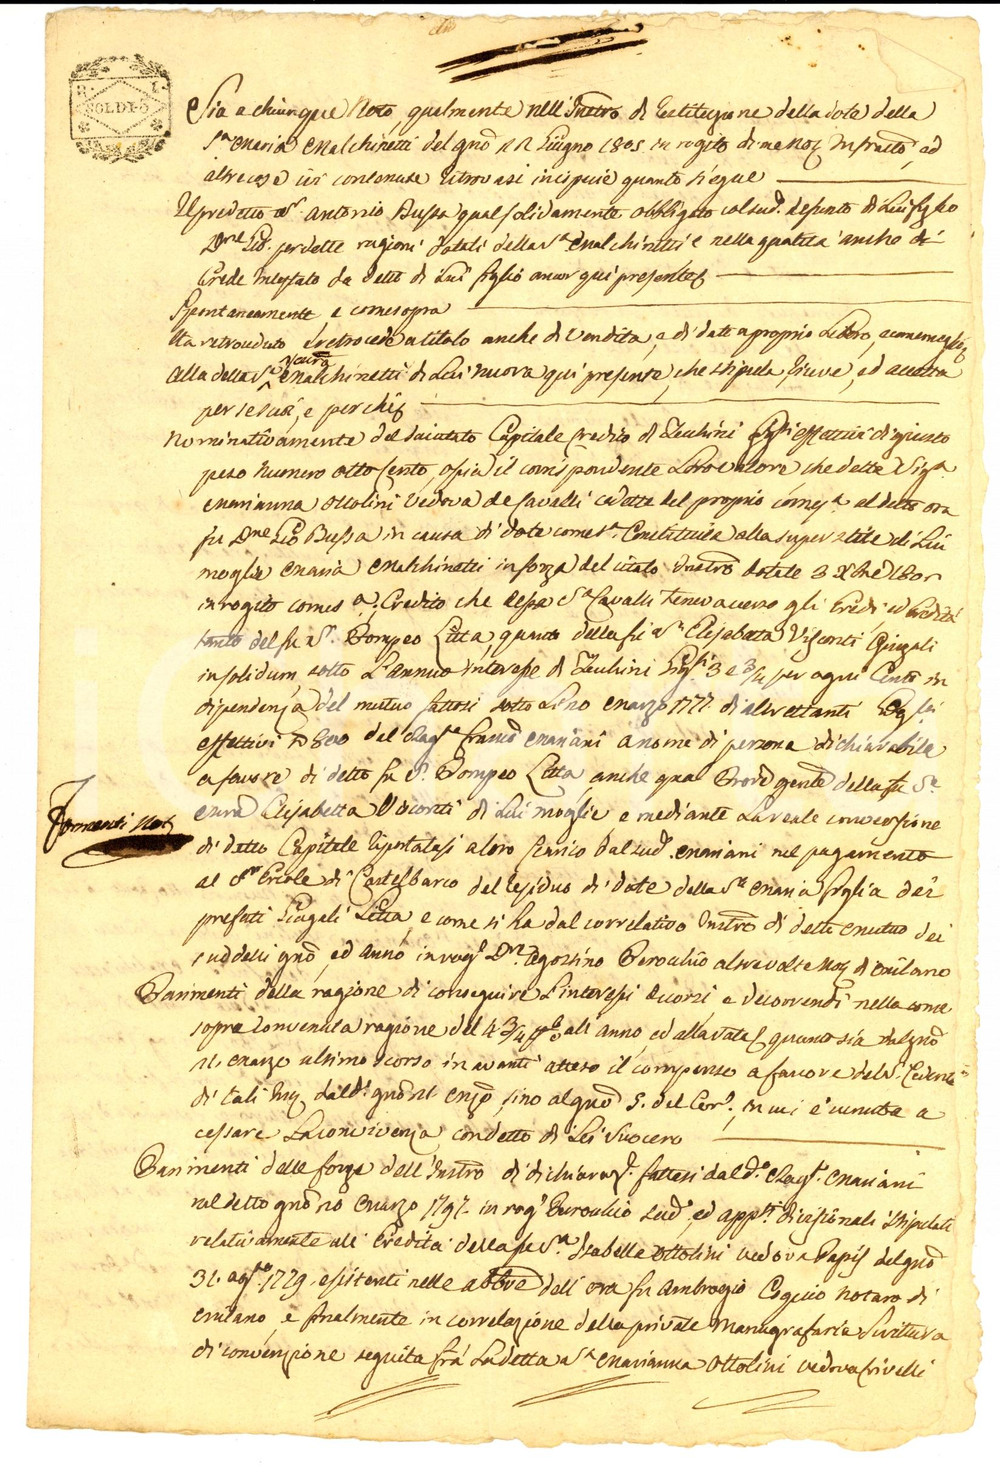 R. I.
SOLDI 5
Sia a chiunque Noto qualmente nell'Instro di Restituzione della dote della
Sra Maria Malchinetti del gno 11 Giugno 1805 in rogito di me Not. Infratto, ed
altre cose ivi contenute ritrovasi inispecie quanto siegue
Il predetto Sr Antonio Bussa qual solidamente obbligato col sud. defunto di Lui figlio
Dne Gio. per dette ragioni dotali della Sra Malchinetti e nella qualità anche di
Erede intestato da detto di Lui figlio ancor qui presente
Spontaneamente e come sopra
Ha retroceduto e retrocede a titolo anche di Vendita, e di dati a proprio Libero,
Alla detta Sra Maria Malchinetti di Lui Nuora qui presente, che stipula, riceve, ed accetta
per se suoi, e per chi
Nominativamente del suicitato Capitale Credito di Zecchini Gigli effettivi di giusto
peso Numero Otto Cento, ossia il corrispondente Loro valore, che detta Siga
Marianna Ottolini Vedova de Cavalli cedette del proprio come sa al detto ora
fu Dne Gio Bussa in causa di dote come sa Constituita alla superstite di Lui
moglie Maria Malchinetti in forza del citato Instro dotale 3 Xbre 1801
in rogito come sa; Credito che dessa Sra Cavalli teneva verso gli Eredi, ed Eredità
tanto del fu Sr. Pompeo Litta, quanto della fu Sra Elisabetta Visconti Giugali
in solidum sotto L'annuo interesse di Zecchini Gigli 3 e 3/4 per ogni Cento in
dipendenza del mutuo fattosi sotto Li 20 Marzo 1777 di altrettanti Gigli
effettivi No 800 del Ragte Franco Mariani a nome di persona dichiarabile
a favore di detto fu Sr. Pompeo Litta, anche qual Prore gente della fu Sra
Mra Elisabetta Visconti di Lui moglie e mediante La reale conversione
Tormenti Not
di detto Capitale riportatasi a loro Carico dal sud. Mariani nel pagamento
al Sr Ercole di Castelbarco del residuo di dote della Sra Maria figlia dei
prefati Giugali Litta, e come si ha dal correlativo Instro di detto Mutuo dei
suddetti gno, ed anno in rog. Dn. Agostino Perochio altre volte Not di Milano
Parimenti della ragione di conseguire L'interessi decorsi e decorrendi nella come
sopra Convenuta ragione del 4 3/4 pC all'anno, ed alla rata quanto sia dal gno
Marzo ultimo scorso in avanti atteso il compenso a favore del Sr Cedente
di tali Int. dal dt gno Mzo, sino al gno 5. del Corr., in cui è venuta a
cessare La convivenza con detto di Lei Suocero
Parimenti delle forza dell'Instro di dichiaraze. fattasi dal do Ragt. Mariani
nel detto gno 20 Marzo 1797 in rog. Perochio sud., ed appti divisionali stipulati
relativamente all'Eredità della fu Sra Isabella Ottolini vedova Papis del gno
31. agto 1779. esistenti nelle abbre dell'ora fu Ambrogio Cogiio Notaro di
Milano, e finalmente in correlazione della privata Manugrafaria Scrittura
di convenzione seguita frà La detta Sra Marianna Ottolini vedova Crivelli